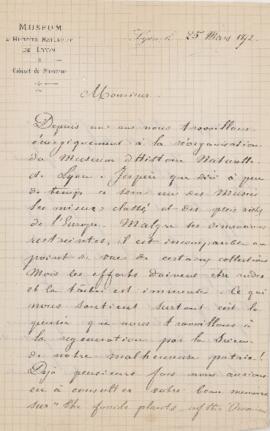 MUSEUM
D'HISTOIRE NATURELLE
DE LYON
Cabinet du Directeur
Lyon le 25 Mars 1872
Monsieur
Depuis un an nous travaillons
énergiquement à la réorganisation
du Museum d'Histoire Naturelle
de Lyon. J'espère que d'ici à peu
de temps ce sera un des Musées
les mieux classés et des plus riches
de l'Europe. Malgré ses dimensions
restreintes, il est incomparable au
point de vue de certaines collections
Mais les efforts doivent être rudes
et la tâche est immense. Ce qui
nous soutient surtout c'est la
pensée que nous travaillons à
la régénération par la Science
de notre malheureuse patrie!
Déjà plusieurs fois nous avions
eu à consulter votre beau memoire
sur "the fossil plants of the